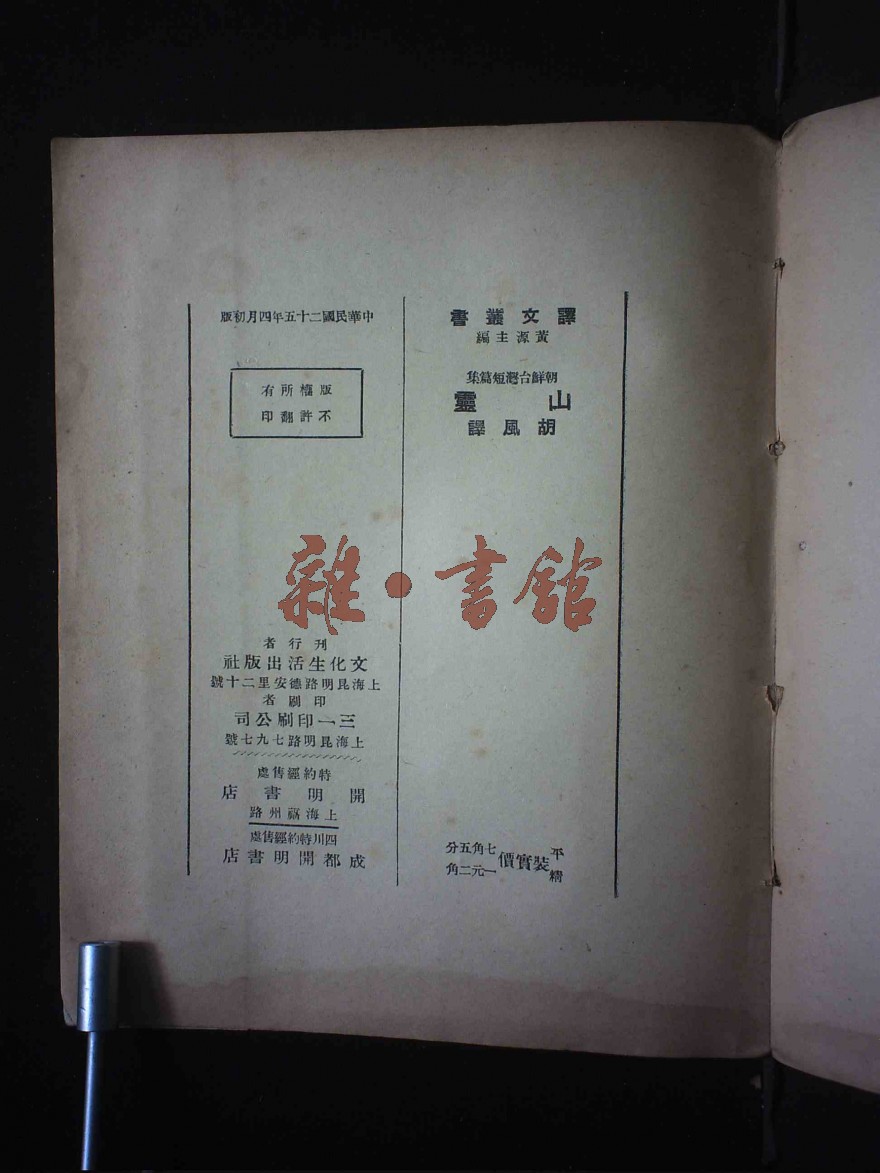 譯文叢書
黃源主編
朝鮮台灣短篇集
山靈
胡風譯
平裝實價七角五分
精裝實價一元二角
中華民國二十五年四月初版
版權所有
不許翻印
刊行者
文化生活出版社
上海昆明路德安里二十號
印刷者
三一印刷公司
上海昆明路七九七號
特約經售處
開明書店
上海福州路
四川特約經售處
成都開明書店
雜·書館